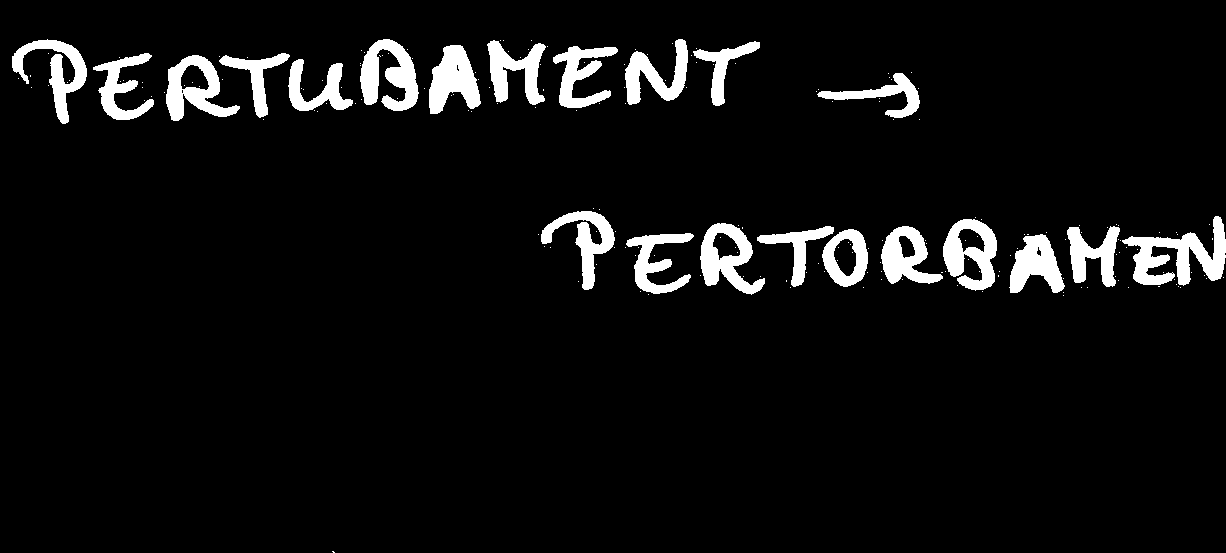 PERTUBAMENT →
PERTORBAMEN